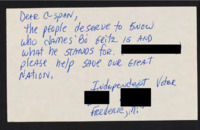 Dear C-SPAN,
The people deserve to know
who James "Bo" Gritz is and
what he stands for.
Please help save our great
Nation.
Independent Voter
Frederic,